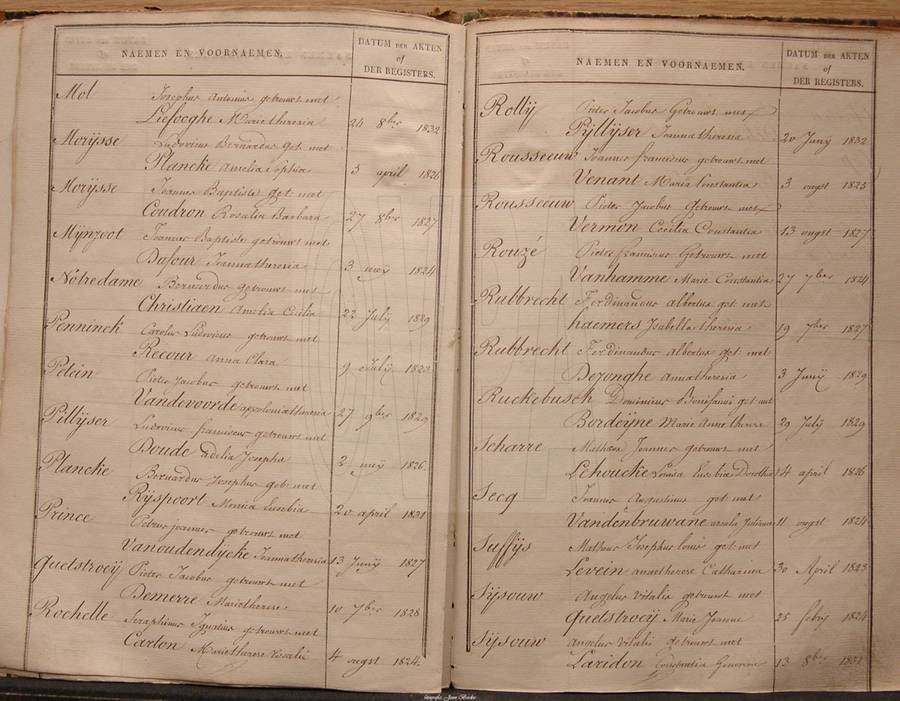 NAEMEN EN VOORNAEMEN.
DATUM DER AKTEN
of
DER REGISTERS.
Mol Josephus Antonius getrouwt met
Liefooghe Marie theresia 24 8ber 1832
Moijsse Ludovicus Bernardus get met
Plancke Amelia Sophia 5 april 1826
Moijsse Joannes Baptiste get met
Coudron Rosalia Barbara 27 8ber 1827
Mijnzoot Joannes Baptiste getrouwt met
Dufour Joannatheresia 3 meij 1824
Notredame Bernardus getrouwt met
Christiaen Amelia Cecilia 22 July 1829
Penninck Carolus Ludovicus getrouwt met
Recour Anna Clara 9 July
Petein Pieter Jacobus getrouwt met
Vandevoorde apoloniatheresia 27 9ber 1829
Pillijser Ludovicus franciscus getrouwt met
Doude Adelia Josepha 2 meij 1826
Plancke Bernardus Josephus getr met
Rijspoort Monica Eusebia 20 april 1831
Prince Petrus joannes getrouwt met
Vanoudendijcke Joannatheresia 13 Junij 1827
Quetstroeij Pieter Jacobus getrouwt met
Demerre Marietherese 10 7ber 1828
Rochelle Seraphinus Ignatius getrouwt met
Carton Marietherese Rosalie 4 augst 1824
NAEMEN EN VOORNAEMEN.
DATUM DER AKTEN
of
DER REGISTERS.
Rollij Pieter Jacobus Getrouwt met
Pijllijser Joannatheresia 20 Junij 1832
Rousseeuw Joannes franciscus getrouwt met
Venant Maria Constantia 3 augst 1825
Rousseeuw Pieter Jacobus Getrouwt met
Vermon Cecilia Constantia 13 augst 1827
Rouzé Pieter franciscus Getrouwt met
Vanhamme Marie Constantia 27 7ber 1824
Rubbrecht Ferdinandus albertus get met
haemers Isabella theresia 19 7ber 1827
Rubbrecht Ferdinandus Albertus get met
Dezonghe annatheresia 3 Junij 1829
Ruckebusch Dominicus Bonifacius get met
Bordeijne Marie Anne therese 29 July 1829
Scharre Matheus Joannes getrouwt met
Lehoucke Louisa Eusebia Dorothea 4 april 1826
Secq Joannes Augustinus get met
Vandenbruwane ursula Juliana 11 augst 1824
Suffijs Matheus Josephus louis get met
Levein annetherese Catharina 30 April 1823
Sijsouw Angelus Vitalis getrouwt met
Quetstroeij Marie Jeanne 25 febrij 1824
Sijsouw angelus vitalis getrouwt met
Laridon Constantia Genoveva 13 8ber 1832